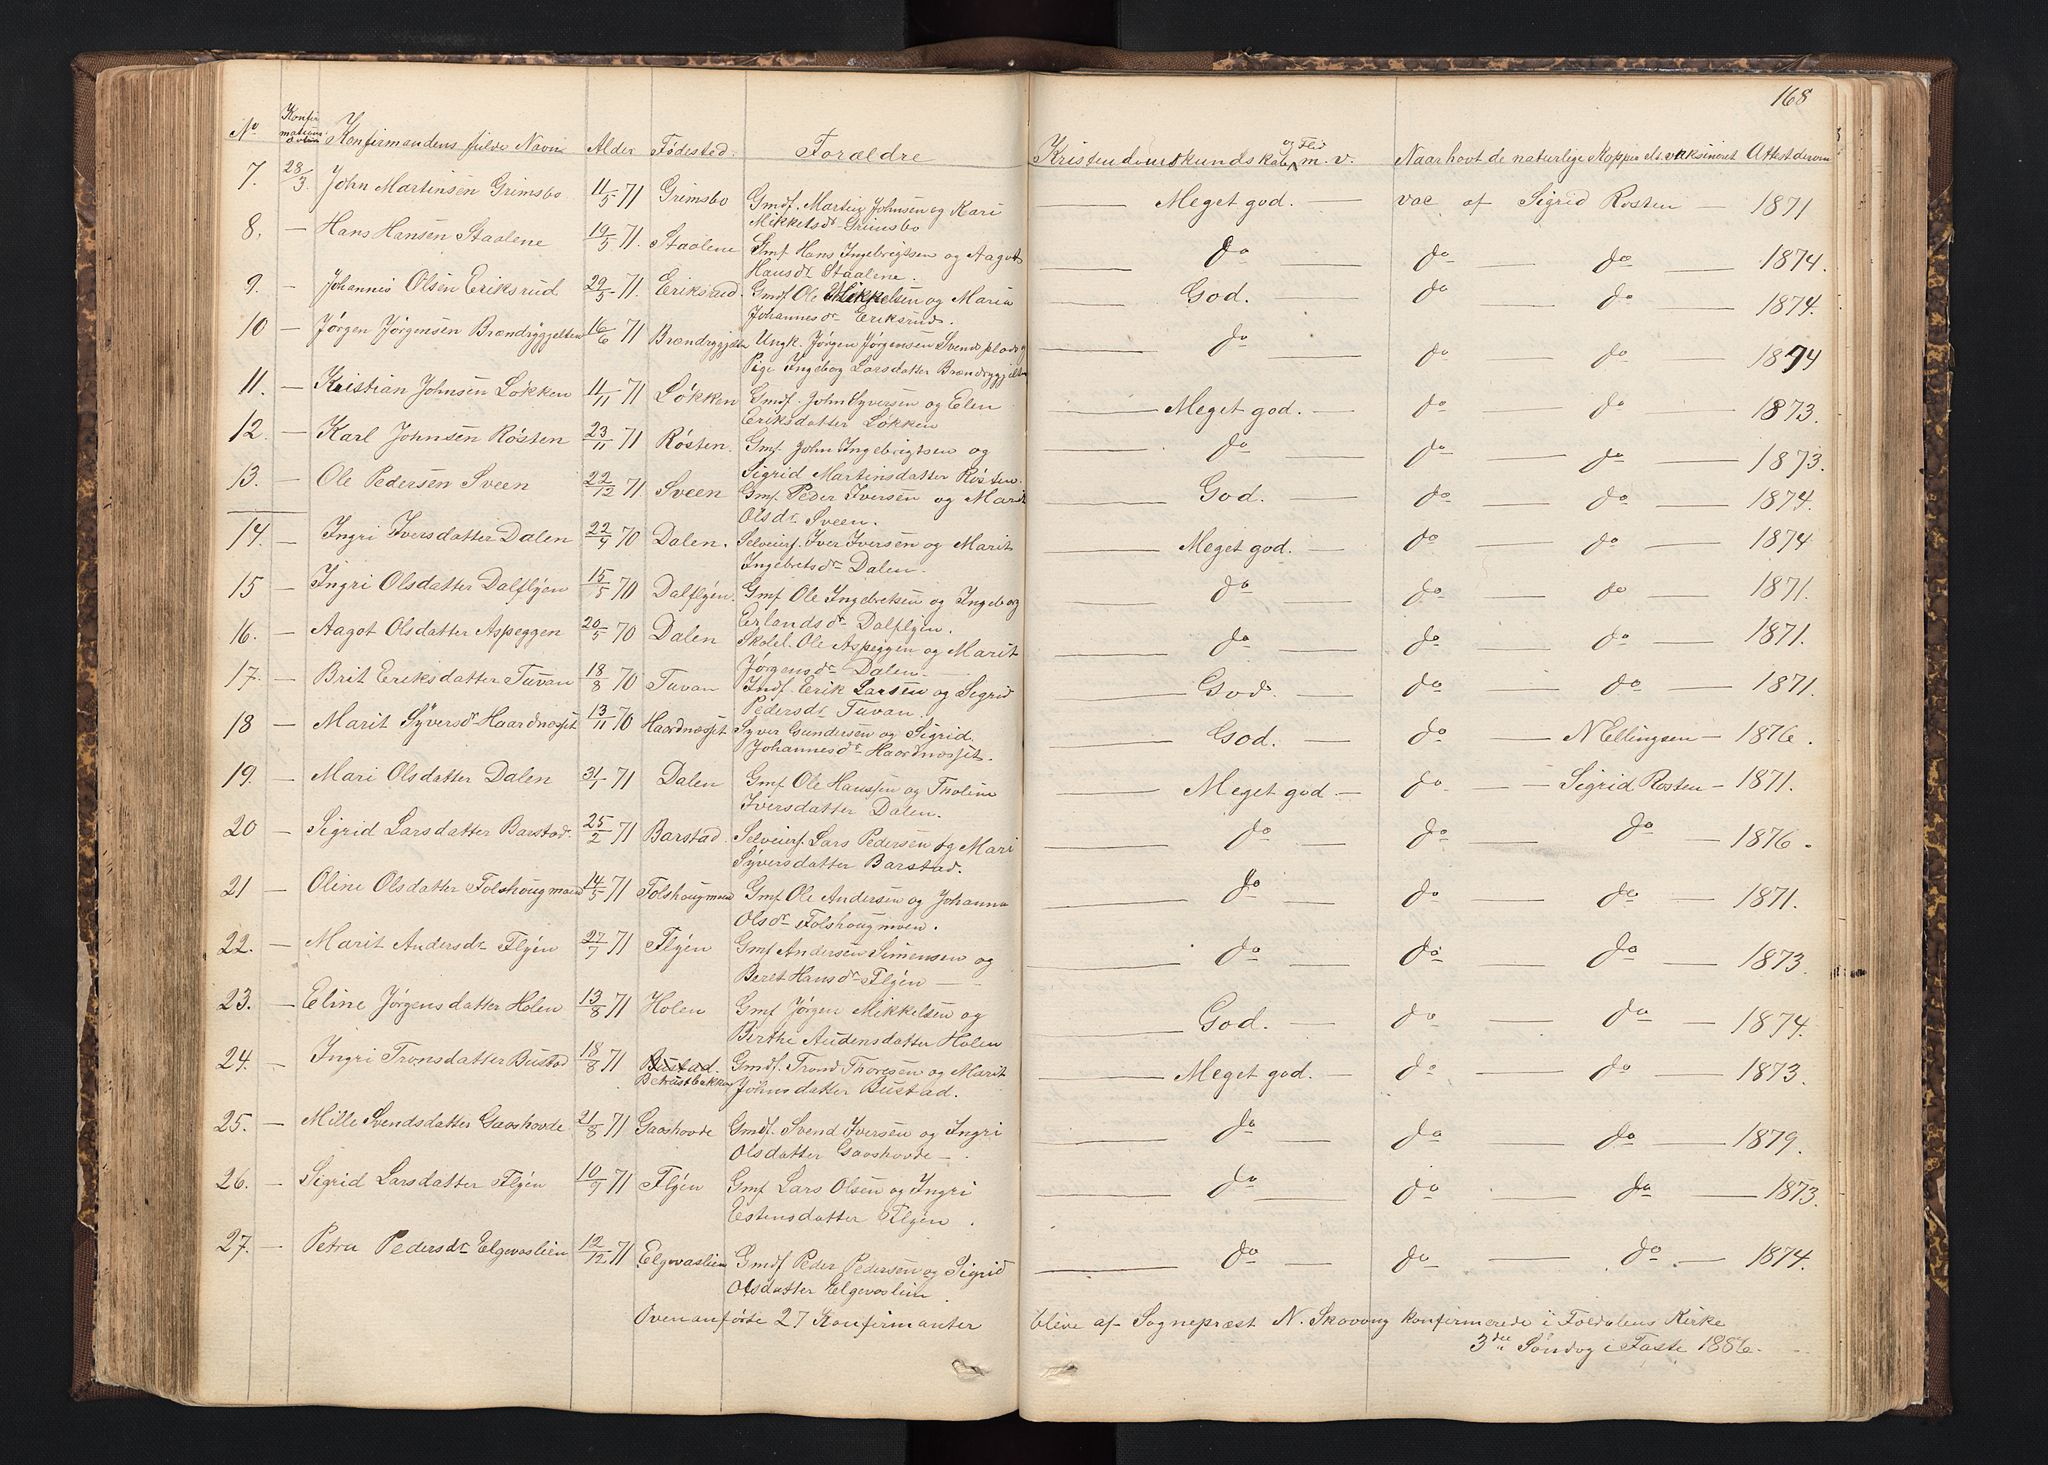 168
No Konfirmationsdatum Konfirmandens fulde Navn Alder Fødested. Forældre Kristendomskundskab og Flid m. v. Naar havt de naturlige Kopper el. vaksineret Attest derom
7. 28/3. John Martinsen Grimsbo 11/5 71 Grimsbo Gmdf. Martin Johnsen og Kari — Meget god. — vac af Sigrid Røsten — 1871
Mikkelsdr Grimsbo
8. — Hans Hansen Staalene 19/5 71. Staalene Gmf Hans Ingebrigtsen og Aagot — do do — do — 1874.
Hansdr Staalene.
9. — Johannes Olsen Eriksrud 29/5 71. Eriksrud. Gmdf Ole Mikkelsen og Maria — God. — do — do — 1874.
Johannesdr Eriksrud.
10 — Jørgen Jørgensen Brændryggjelten 16/6 71 Brændryggjelten Ungk. Jørgen Jørgensen Svendsplads og — do do — do — 1874
Pige Ingebog Larsdatter Brændryggjelten
11. — Kristian Johnsen Løkken 11/11 71 Løkken Gmdf. John Syversen og Elen — Meget god. — do — do — 1873.
Eriksdatter Løkken
12. — Karl Johnsen Røsten 23/11 71 Røsten. Gmf. John Ingebrigtsen og — do do — do — 1873.
Sigrid Martinsdatter Røsten.
13. — Ole Pedersen Sveen 22/12 71 Sveen Gmf. Peder Iversen og Marit — God. — do — do — 1874.
Olsdr Sveen.
14. — Ingri Iversdatter Dalen 22/4 70 Dalen. Selveierf. Iver Iversen og Marit — Meget god. — do — do — 1874
Ingebretsdr Dalen.
15 — Ingri Olsdatter Dalflyen 15/5 70 Dalflyen. Gmf Ole Ingebretsen og Ingeborg — do do — do — 1871.
Erlandsdr Dalflyen.
16. — Aagot Olsdatter Aspeggen 20/5 70 Dalen Skolel. Ole Aspeggen og Marit — do do — do — 1871.
Jørgensdr Dalen.
17. — Brit Eriksdatter Tuvan 18/8 70 Tuvan Indf. Erik Larsen og Sigrid — God. do — do — 1871.
Pedersdr Tuvan.
18 — Marit Syversdr Haardnæsset 13/11 70 Haardnæsset Syver Gundersen og Sigrid — God. — do — N Ellingsen — 1876.
Johannesdr Haardnæsset.
19. — Mari Olsdatter Dalen 31/1 71 Dalen Gmf Ole Hanssen og Tholine — Meget god — do — Sigrid Rosten — 1871.
Iversdatter Dalen.
20 — Sigrid Larsdatter Barstad. 25/2 71 Barstad. Selveierf. Lars Pedersen og Mari — do do do — 1876.
Syversdatter Barstad.
21 — Oline Olsdatter Folshougmoen 14/5 71 Folshougmoen Gmf Ole Andersen og Johanna — do do — do — 1871.
Olsdr Folshougmoen.
22. — Marit Andersdr Flyen 27/7 71 Flyen Gmf Andersen Simensen og — do — do — do — 1873.
Beret Hansdr Flyen —
23. — Eline Jørgensdatter Holen 13/8 71 Holen Gmf Jørgen Mikkelsen og — God. — do — do — 1874.
Birthe Audensdatter Holen
24. — Ingri Tronsdatter Bustad 18/8 71 Bustad. Gmdf. Trond Thoresen og Marit — Meget god. — do — do — 1873.
Betrustbakken Johnsdatter Bustad.
25. — Mille Svendsdatter Gaashovde 21/8 71 Gaashovde Gmdf. Svend Iversen og Ingri — do do — do — 1879.
Olsdatter Gaashovde —
26. — Sigrid Larsdatter Flyen 10/9 71 Flyen Gmf Lars Olsen og Ingri — do — do — do — 1873.
Estensdatter Flyen.
27. — Petra Pedersdr Elgevaslien 12/12 71 Elgevaslien Gmdf Peder Pedersen og Sigrid — do do — do — 1874.
Olsdatter Elgevaslien.
Ovenanførte 27 Konfirmanter bleve af Sognepræst N. Skovog konfirmerede i Foldalens Kirke
3die Søndag i Faste 1886.